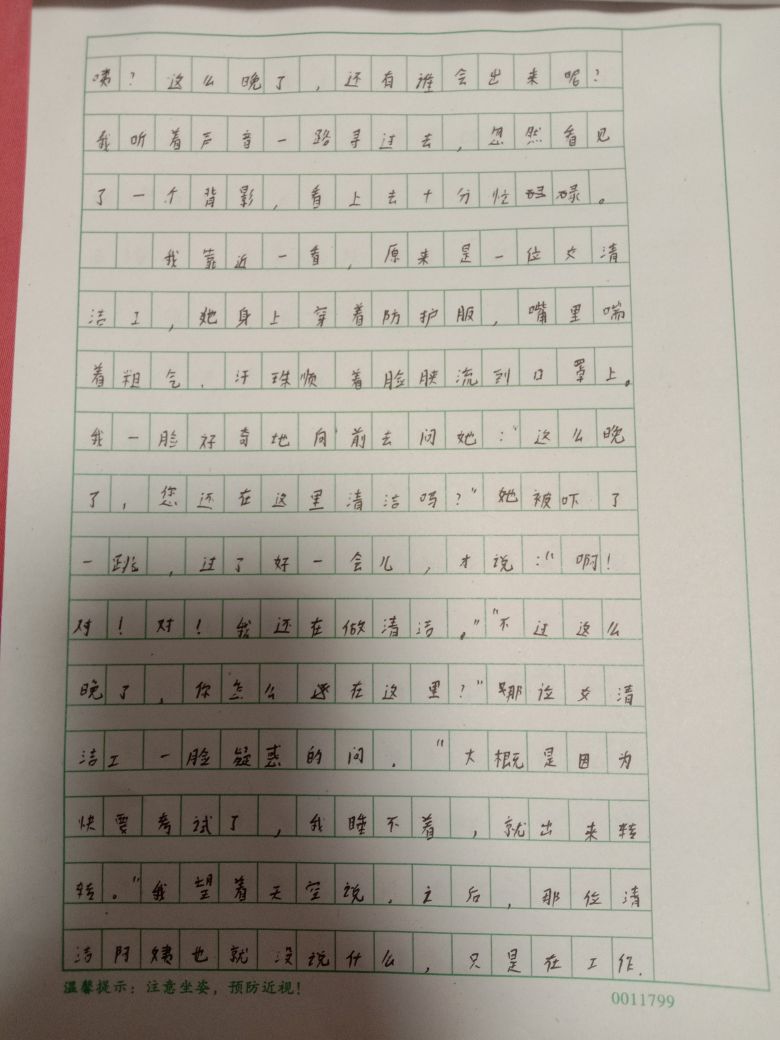 咦？这么晚了，还有谁会出来呢？
我听着声音一路寻过去，忽然看见
了一个背影，看上去十分忙碌。
我靠近一看，原来是一位女清
洁工，她身上穿着防护服，嘴里喘
着粗气．汗珠顺着脸颊流到口罩上。
我一脸好奇地向前去问她："这么晚
了，您还在这里清洁吗？"她被吓了
一跳，过了好一会儿，才说："啊！
对！对！我还在做清洁。""不过这么
晚了，你怎么还在这里？"那位女清
洁工一脸疑惑的问．"大概是因为
快要考试了，我睡不着，就出来转
转。"我望着天空说．之后，那位清
洁阿姨也就没说什么，只是在工作．
温馨提示：注意坐姿，预防近视！ 0011799